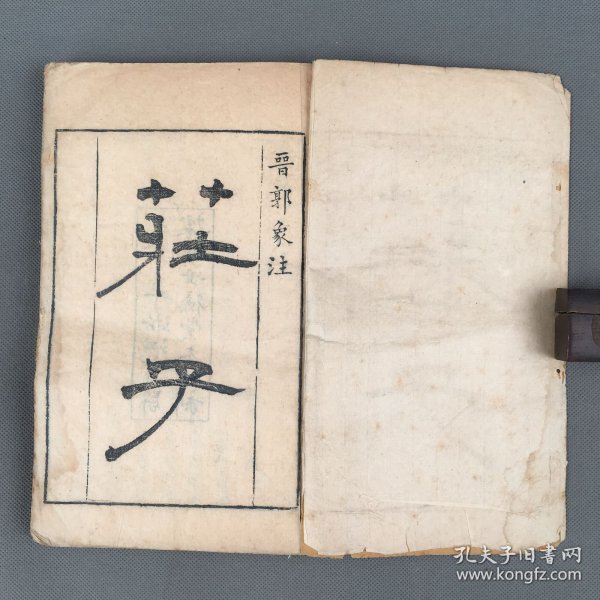 晉郭象注
莊子
孔夫子旧书网
www.kongfz.com